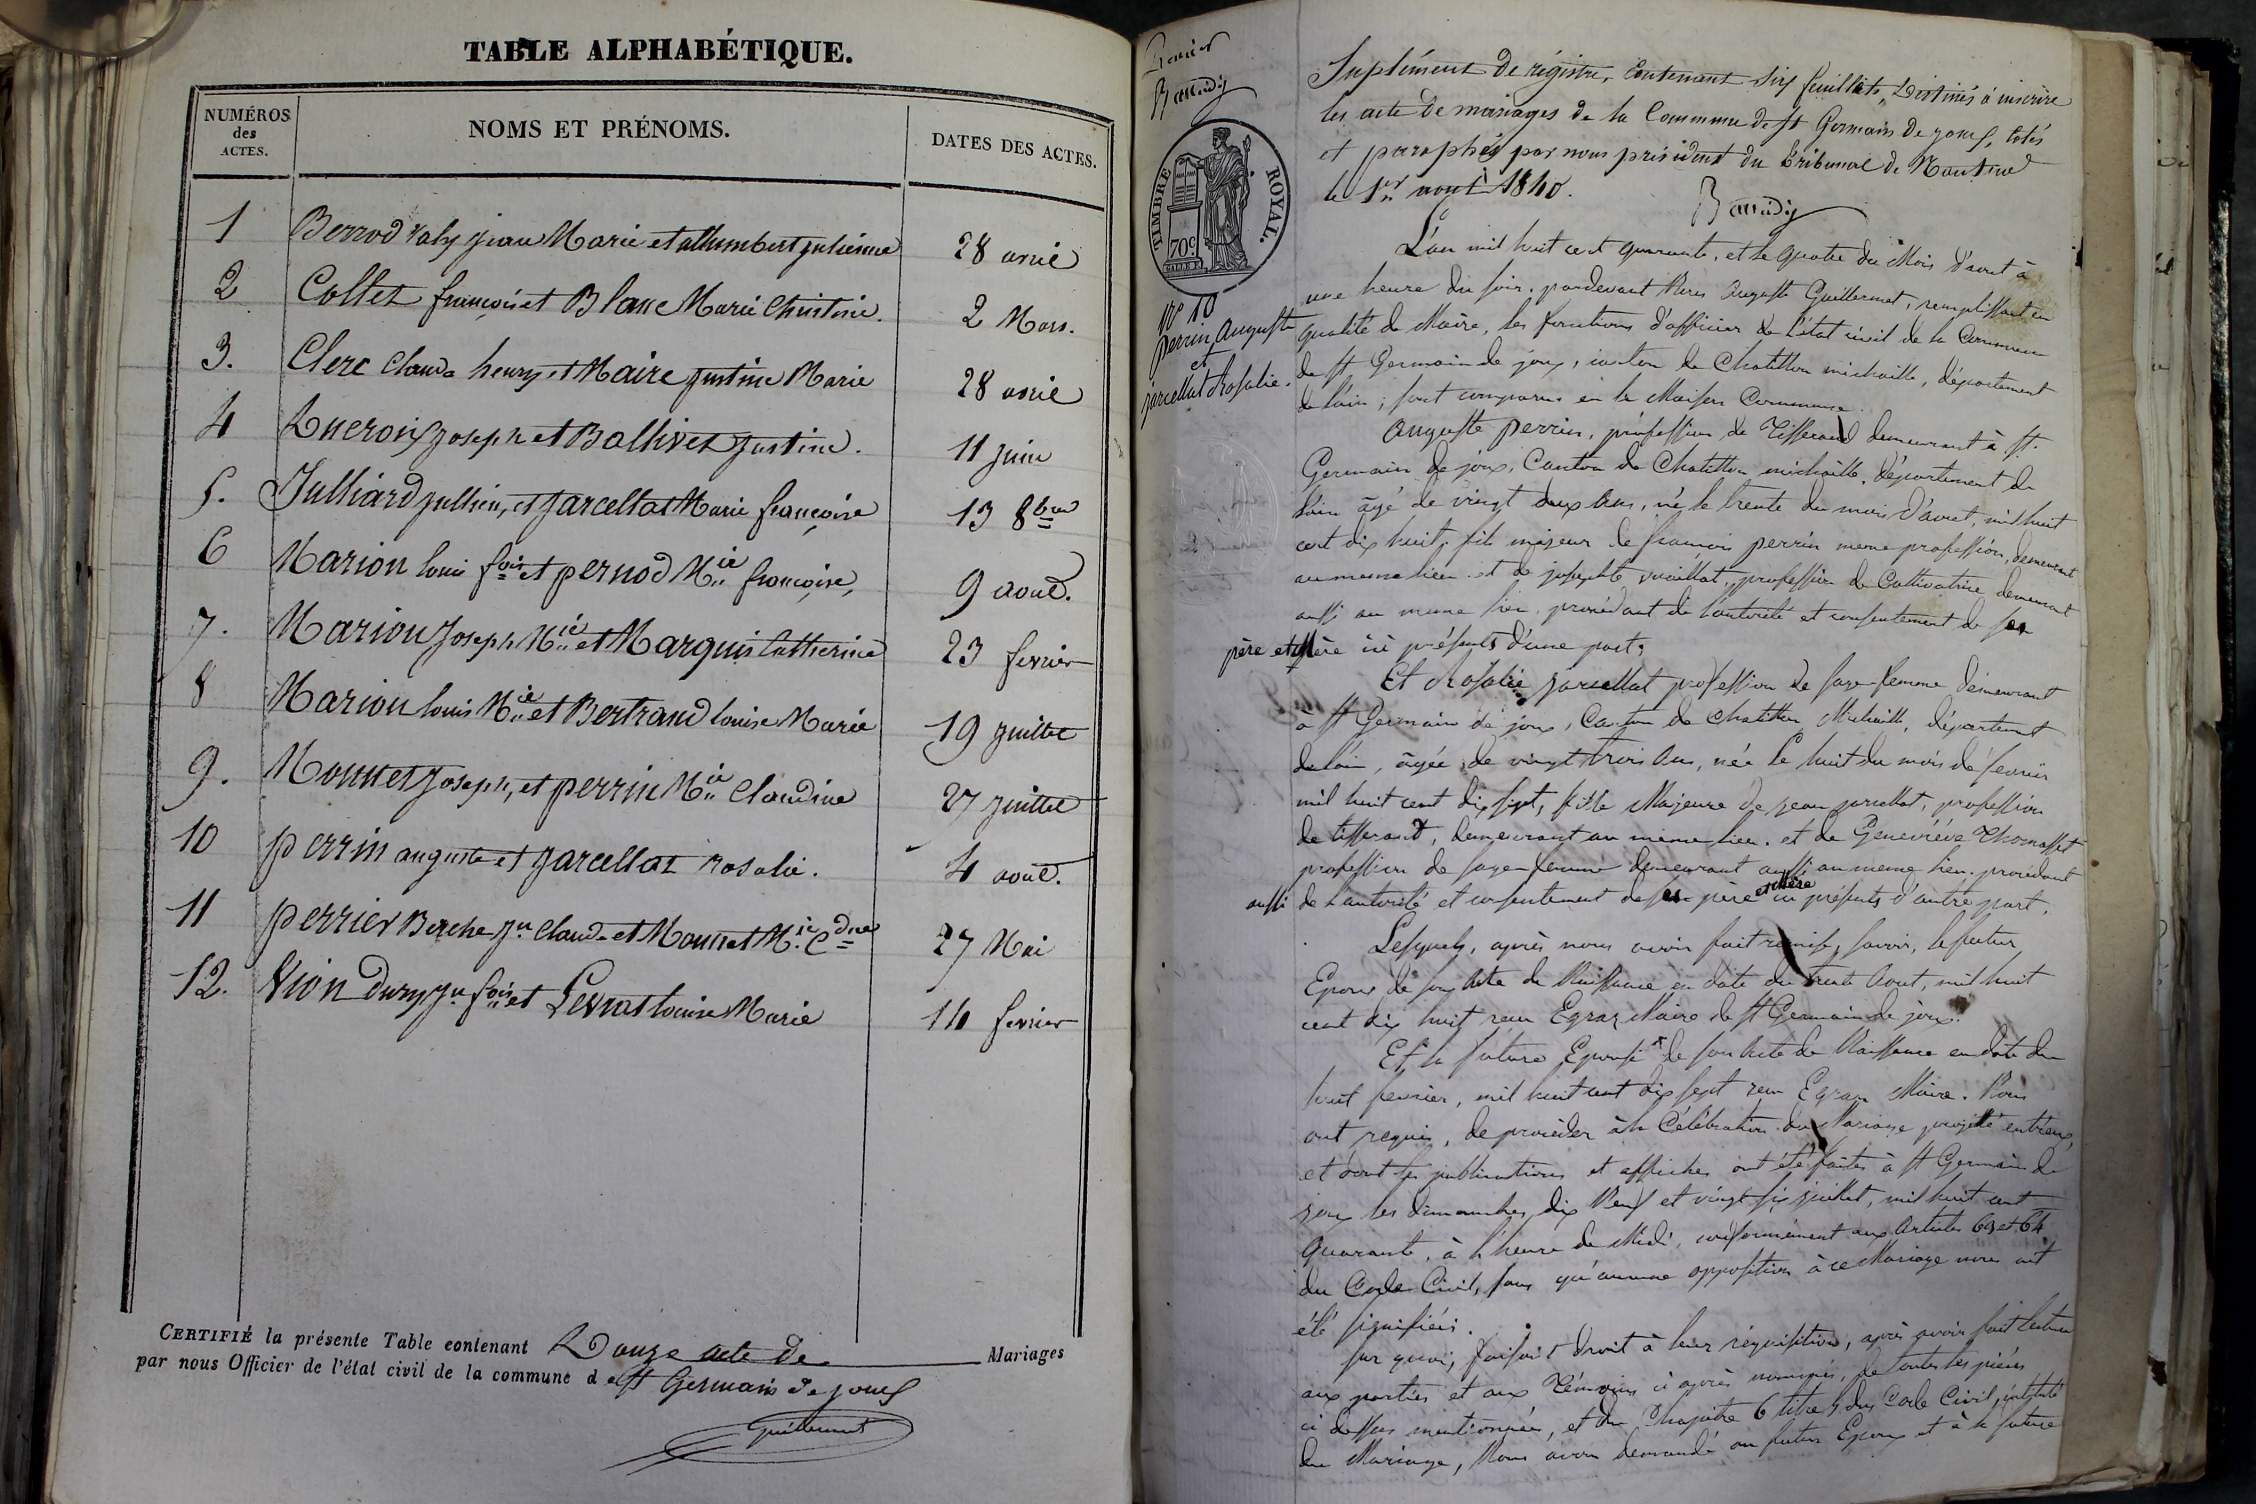 TABLE ALPHABÉTIQUE.
NUMÉROS
des
ACTES.
NOMS ET PRÉNOMS.
DATES DES ACTES.
1 Berrod Jean Marie et Allumbert Julienne 28 avril
2 Collet françois et Blanc Marie Christine. 2 Mars.
3. Clerc Claude henry et Maire Justine Marie 28 avril
4 Ducroix Joseph et Ballivet Justine. 11 juin
5. Julliard Jullien, et Jarcellat Marie françoise 13 8bre
6 Marion louis fois et pernod Mie françoise, 9 aout.
7. Marion Joseph Mie et Marquis Catherine 23 fevrier
8 Marion louis Mie et Bertrand louise Marie 19 juillet
9. Monnet Joseph, et perrin Mie Claudine 27 juillet
10 perrin auguste et Jarcellat rosalie. 4 aout.
11 perrier Berche Jn Claude et Monnet Mie Cdne 27 Mai
12. Vion Dury Jn fois et Levrat louise Marie 14 fevrier
CERTIFIÉ la présente Table contenant Douze acte de Mariages
par nous Officier de l'état civil de la commune de St Germain de joux
Guillermet
Premier
Baudy
TIMBRE ROYAL.
70c.
No 10
perrin Auguste
et
jarcellat Rosalie.
Suplément de régistre, Contenant Six feuillets, Destinés à inscrire
les acte de mariages de la Commune de St Germain de joux, cotés
et paraphés par nous président du tribunal de Nantua
le 1er août 1840.
Baudy
L'an mil huit cent quarante, et le quatre du Mois d'aout à
une heure du soir. pardevant Nous Auguste Guillermet, remplissant en
qualité de Maire, les fonctions d'officier de l'état civil de la Commune
de St Germain de joux, canton de Chatillon michaille, département
de l'ain, sont comparus en la Maison Commune.
Auguste perrin, profession de Tisserand demeurant à St.
Germain de joux, Canton de Chatillon michaille, département de
l'ain âgé de vingt deux Ans, né le trente du mois d'aout, mil huit
cent dix huit, fils majeur de francois perrin meme profession, demeurant
au meme lieu et de josephte vuaillat, profession de Cultivatrice demeurant
aussi au meme lieu. procédant de l'autorité et consentement de ses
père et Mère ici présents d'une part.
Et Rosalie jarcellat profession de sage femme demeurant
a St Germain de joux, Canton de Chatillon Michaille, département
de l'ain, âgée de vingt trois Ans, née le huit du mois de fevrier
mil huit cent dix sept, fille Majeure de jean jarcellat, profession
de tisserand, demeurant au même lieu. et de Geneviève Thomasset
profession de sage femme demeurant aussi au meme lieu. procédant
aussi de l'autorité et consentement de ses père et Mère ici présents d'autre part.
Lesquels, après nous avoir fait remise, savoir, le futur
Epoux de son Acte de Naissance en date du trente Aout, mil huit
cent dix huit reçu Egraz Maire de St Germain de joux.
Et la future Epouse de son Acte de Naissance en date du
huit fevrier, mil huit cent dix sept reçu Egraz Maire. Nous
ont requis, de procéder à la Célébration du Mariage projetté entreux,
et dont les publications et affiches ont été faites à St Germain de
joux les dimanches dix Neuf et vingt six juillet, mil huit cent
quarante, à l'heure de Midi, conformément aux Articles 63 et 64
du Code Civil, sans qu'aucune opposition à ce Mariage nous ait
été signifiée.
Sur quoi, faisant droit à leur réquisition, après avoir fait lecture
aux parties et aux Témoins ci après nommés, de toutes les pièces
ci dessus mentionnées, et du Chapitre 6 titre 5 du Code Civil, intitulé
du Mariage, Nous avons demandé au futur Epoux et à la future